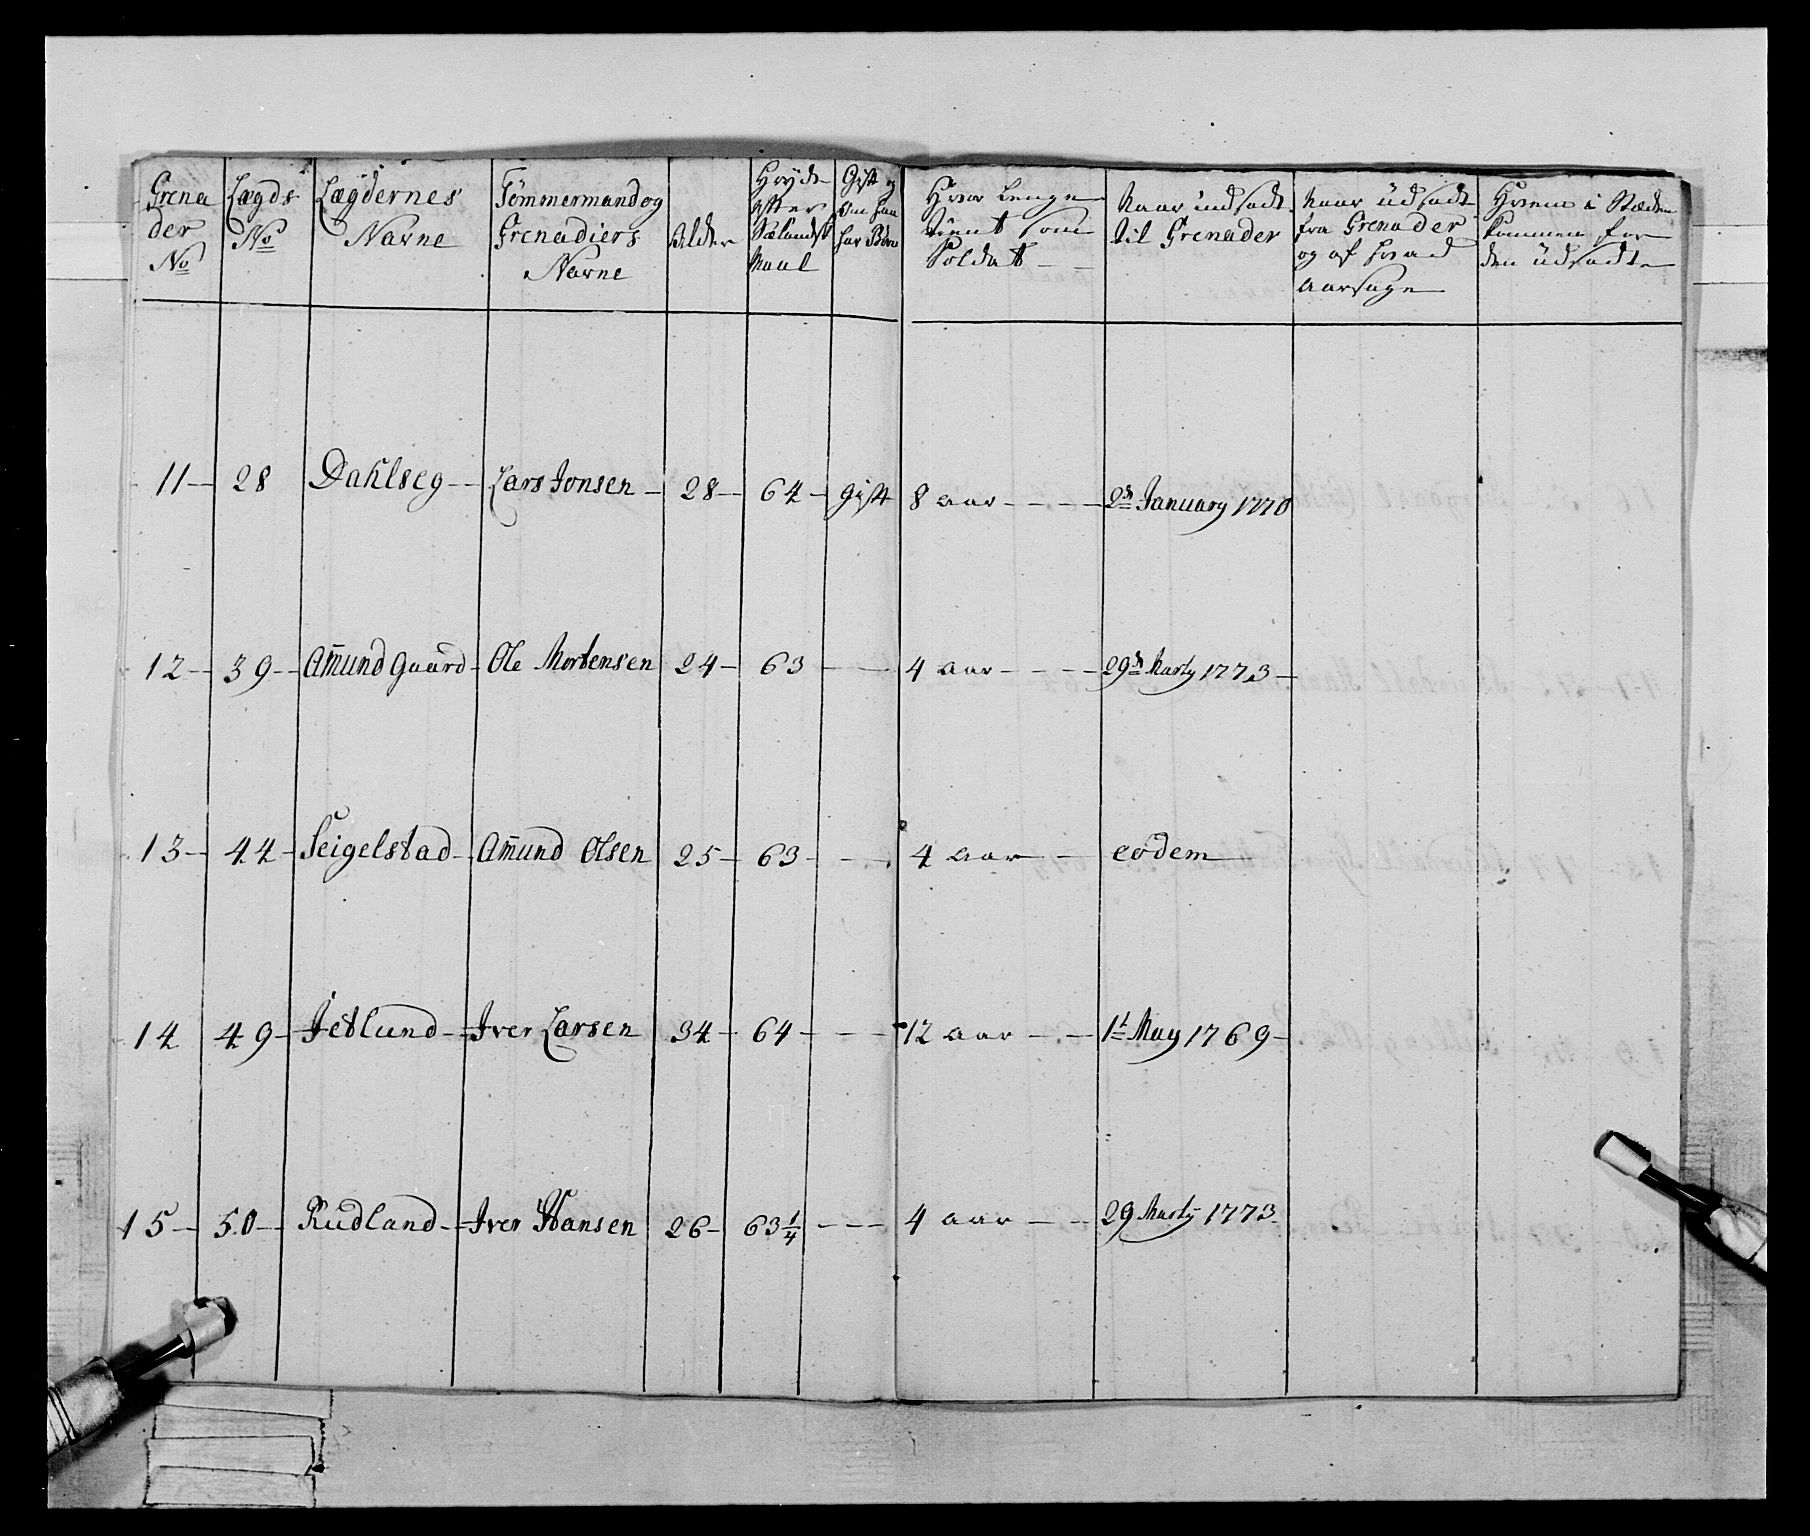 Grena
der
No
Lægds
No
Lægdernes
Navne
Tömmermand og
Grenadiers
Navne
Alder
Höyde
efter
Siælandsk
Maal
Gift og
om han
har Börn
Hvor lenge
tient som
Soldat
Naar indsadt
til Grenader
Naar üdsadt
fra Grenader
og af hvad
aarsage
Hvem i Stæden
kommen for
den üdsadte
11 - 28 Dahlseg - Lars Jonsen - 28 - 64 - gift 8 aar - - - 2d January 1770
12 - 39 - Am̄und Gaard - Ole Mortensen 24 - 63 - - 4 aar - - - 29d Marty 1773 -
13 - 44 - Seigelstad - Am̄und Olsen 25 - 63 - - - 4 aar - - eodem
14 49 - Jetlund - Iver Larsen 34 - 64 - - - 12 aar - - 1t May 1769 -
15 - 50 - Rudland - Iver Hansen 26 - 63 1/4 - - - 4 aar - - 29 Marty 1773